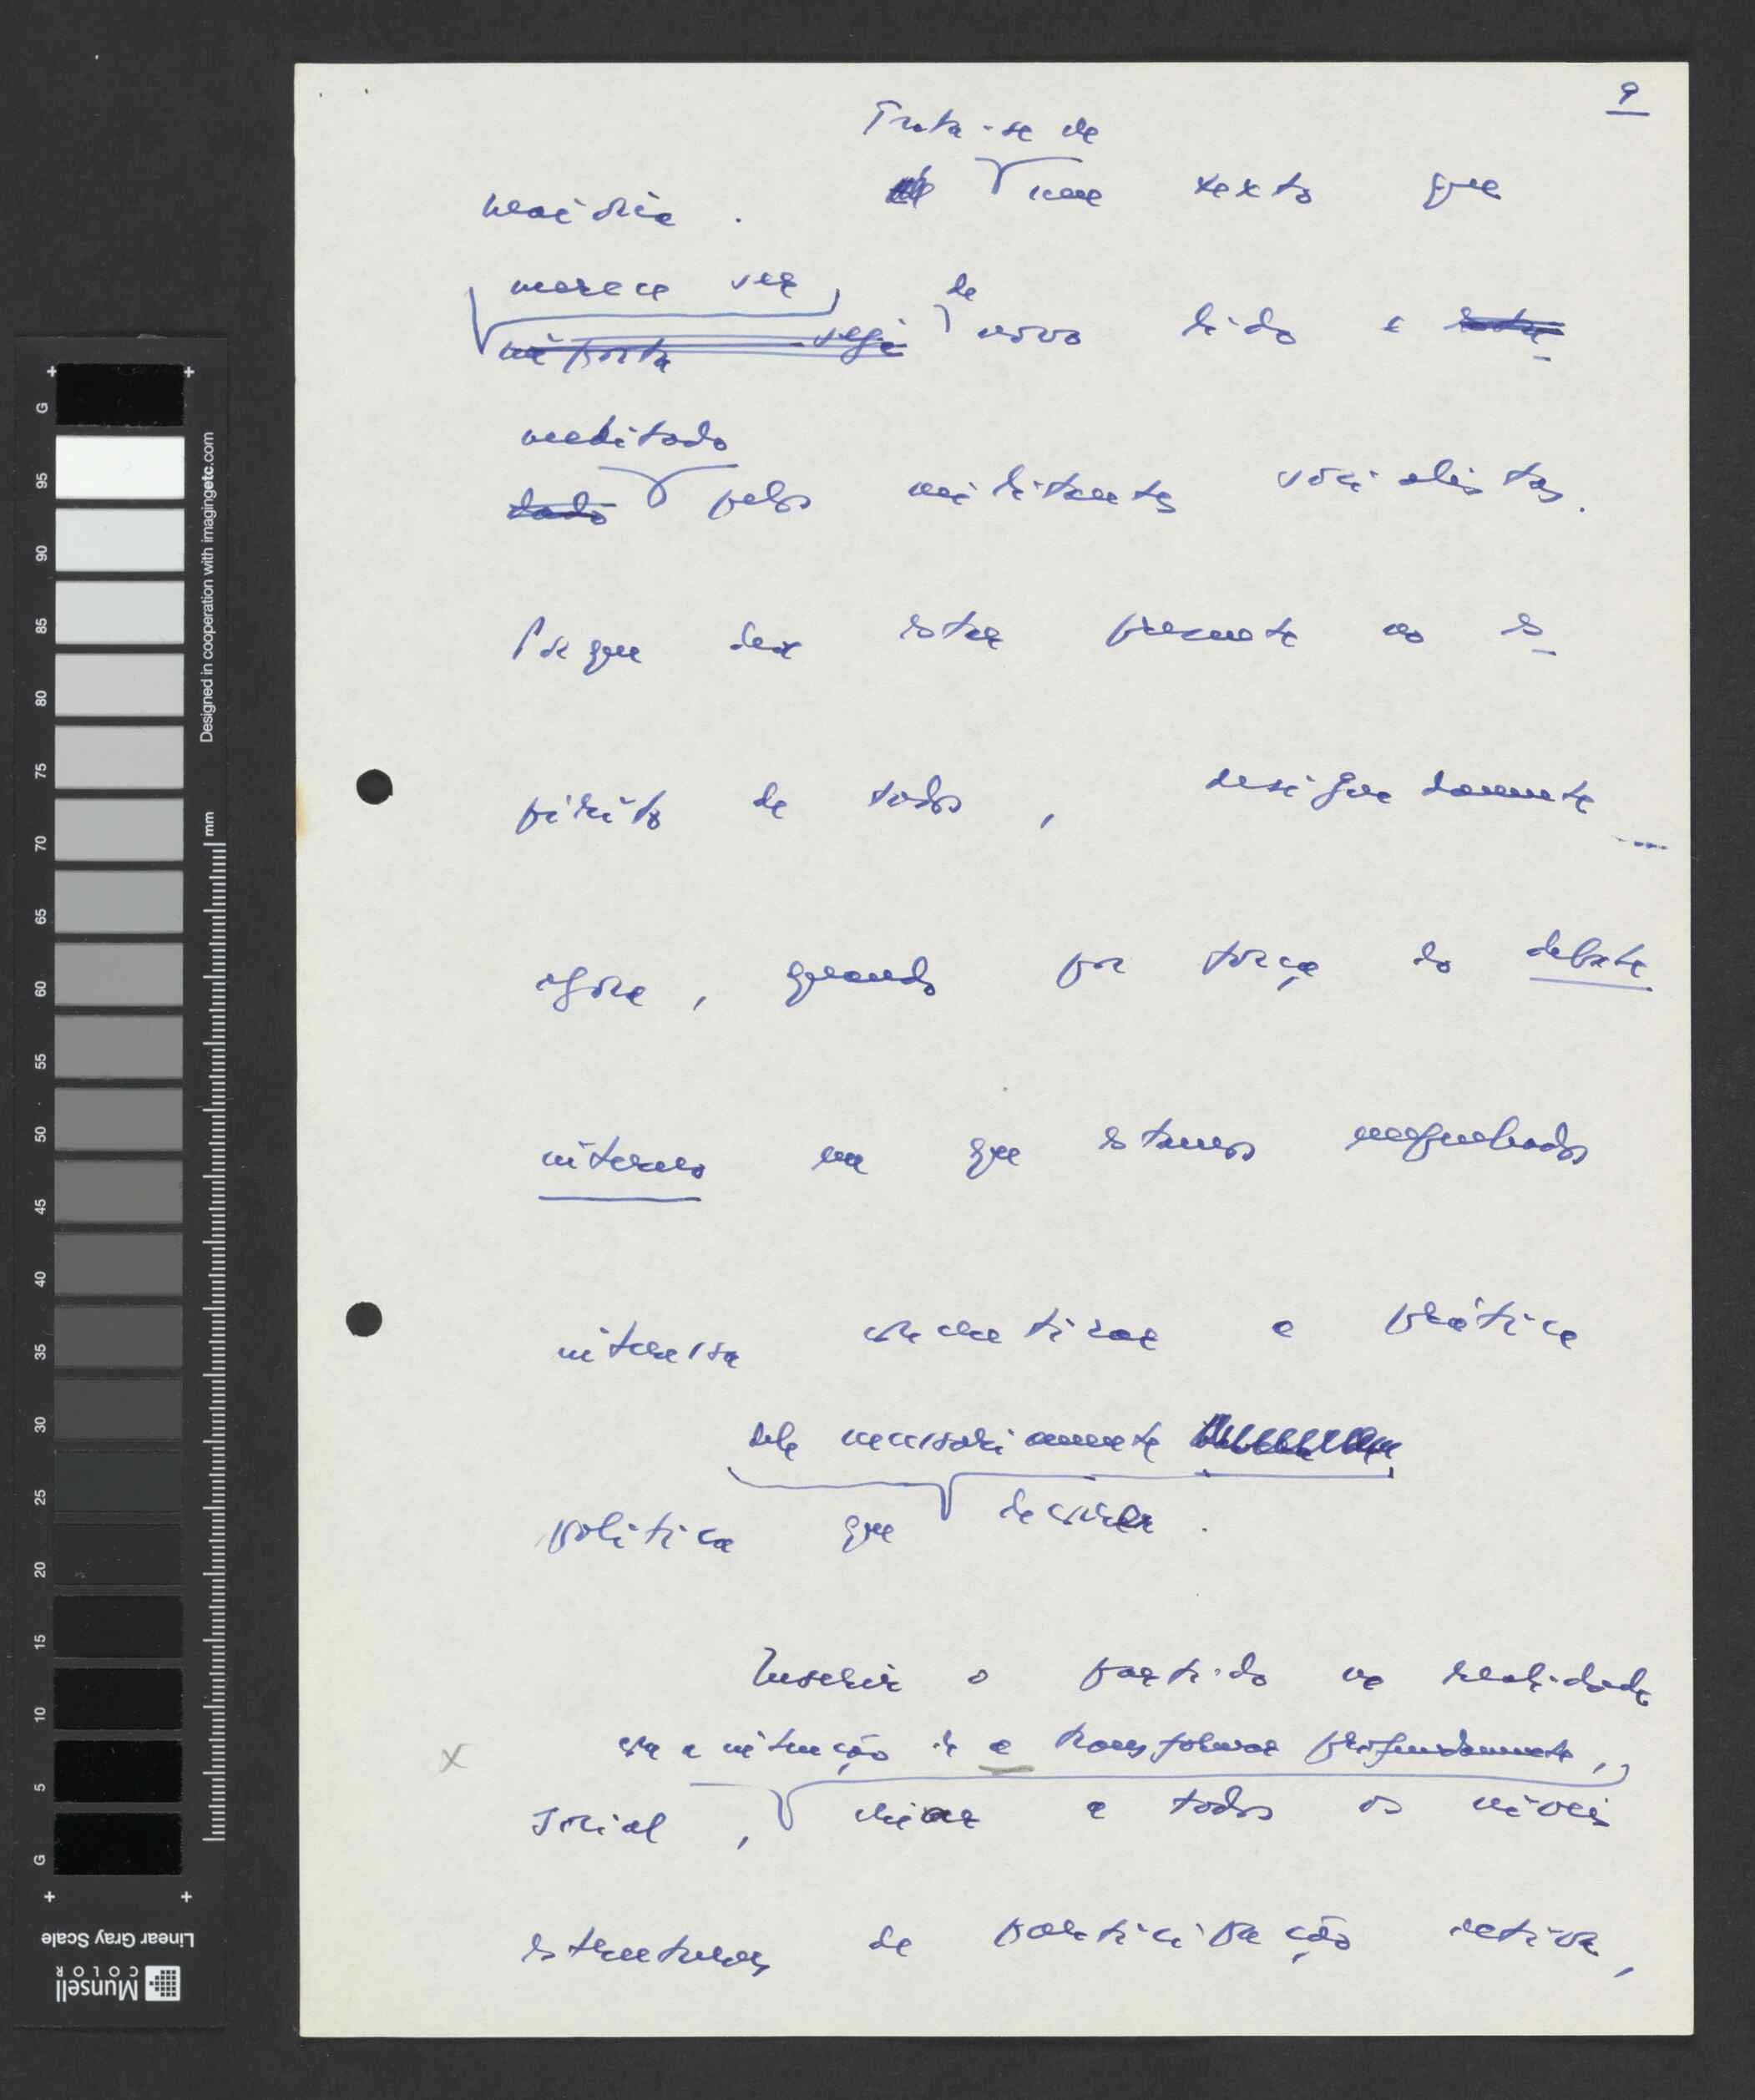 9
Trata-se de
maioria. um texto que
merece ser de
importa seja novo lido e
meditado
dado pelos militantes socialistas.
Porque deve estar presente no es-
pírito de todos, designadamente
agora, quando por força do debate
interno em que estamos mergulhados
interessa a prática
dele necessariamente
política que decorre.
Inserir o partido na realidade
com a intenção de a transformar profundamente,
x
social, criar a todos os níveis
estruturas de participação activa,
G
95
90
85
80
75
70
65
60
55
50
45
40
35
30
25
20
15
10
5
G
mm
Designed in cooperation with imagingetc.com
Linear Gray Scale
Munsell
COLOR